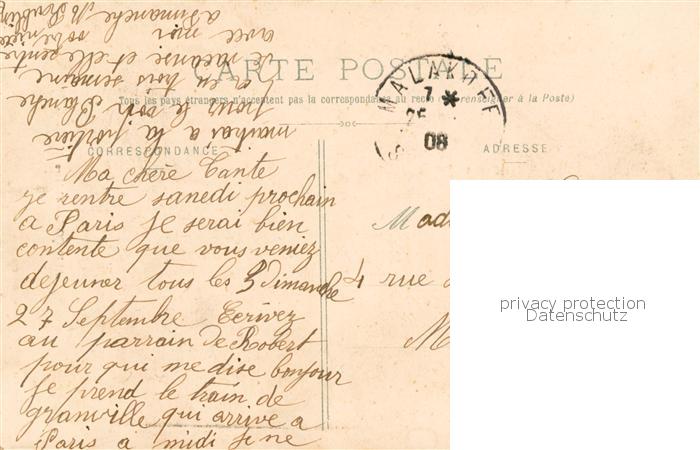 CARTE POSTALE
Tous les pays étrangers n'acceptent pas la correspondance au recto (se renseigner à la Poste)
CORRESPONDANCE
ADRESSE
MALAKOFF
7 *
25
08
Ma chère Tante
je rentre samedi prochain
a Paris Je serai bien
contente que vous veniez
dejeuner tous les 3 Dimanche
27 Septembre Ecrivez
au parrain de Robert
pour qui me dise bonjour
Je prend le train de
granville qui arrive a
Paris a midi Je ne
manhas a la portière
pour le voir Blanche
en trois semaine
de vacanse et elle rentre
avec moi votre nièce
a Dimanche M
Mad
4 rue
M
privacy protection
Datenschutz